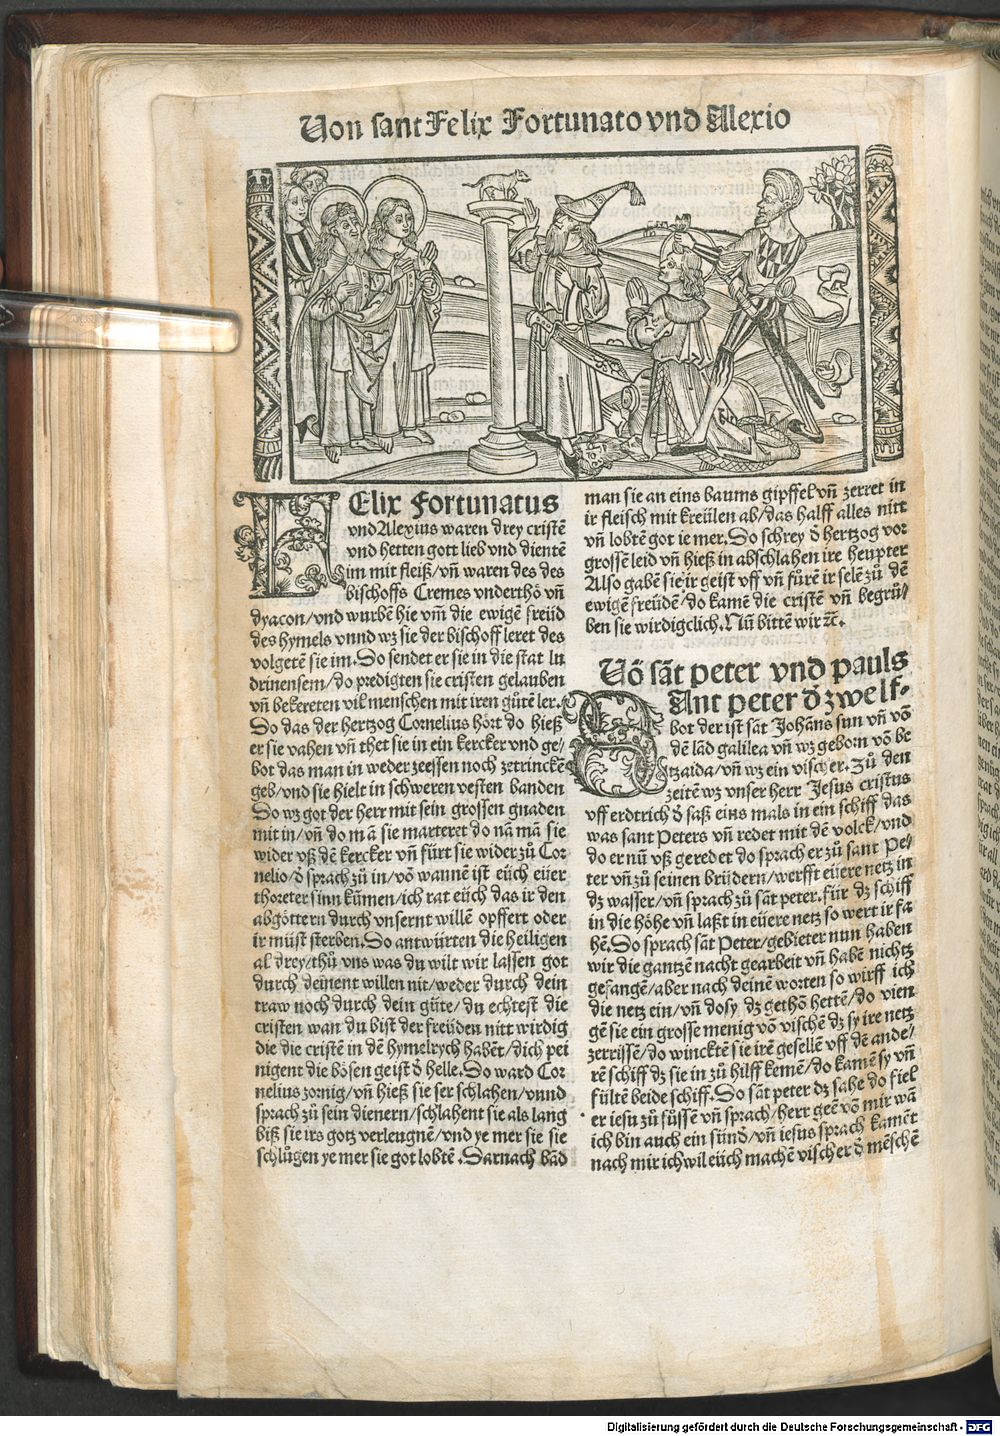 Von sant Felix Fortunato vnd Alexio
FElix Fortunatus
vnd Alexius waren drey cristē
vnd hetten gott lieb vnd dientē
im mit fleiß/vñ waren des des
bischoffs Cremes vnderthō vñ
dyacon/vnd wurbē hie vm̄ die ewigē freüd
des hymels vnnd wz sie der bischoff leret des
volgetē sie im. So sendet er sie in die stat lu
drinensem/do predigten sie cristen gelauben
vñ bekereten vil menschen mit iren gůtē ler.
So das der hertzog Cornelius hort do hieß
er sie vahen vñ thet sie in ein kercker vnd ge/
bot das man in weder zeessen noch zetrinckē
geb/vnd sie hielt in schweren vesten banden
So wz got der herr mit sein grossen gnaden
mit in/vñ do mā sie marteret do nā mā sie
wider vß dē kercker vñ fürt sie wider zů Cor
nelio/d̄ sprach zů in/vō wannē ist eüch eüer
thoreter sinn kūmen/ich rat eüch das ir den
abgöttern durch vnsernt willē opffert oder
ir müst sterben. So antwürten die heiligen
al drey/thů vns was du wilt wir lassen got
durch deinent willen nit/weder durch dein
traw noch durch dein güte/du echtest die
cristen wan du bist der freüden nitt wirdig
die die cristē in dē hymelrych habēt/dich pei
nigent die bösen geist d̄ helle. So ward Cor
nelius zornig/vñ hieß sie ser schlahen/vnnd
sprach zů sein dienern/schlahent sie als lang
biß sie irs gotz verleugnē/vnd ye mer sie sie
schlügen ye mer sie got lobtē. Darnach bād
man sie an eins baums gipffel vñ zerret in
ir fleisch mit kreülen ab/das halff alles nitt
vñ lobtē got ie mer. So schrey d̄ hertzog vor
grossē leid vñ hieß in abschlahen ire heupter
Also gabē sie ir geist vff vñ fůrē ir selē zů dē
ewigē freüdē/do kamē die cristē vñ begrů/
ben sie wirdigclich. Nū bittē wir ꝛc̄.
Vō sāt peter vnd pauls
SAnt peter d̄ zwelf-
bot der ist sāt Johās sun vñ vō
dē lād galilea vñ wz geborn vō be
tzaida/vñ wz ein vischer. Zů den
zeitē wz vnser herr Jesus cristus
vff erdtrich d̄ saß eins mals in ein schiff das
was sant Peters vñ redet mit dē volck/vnd
do er nū vß geredet do sprach er zů sant Pe/
ter vñ zů seinen brüdern/werfft eüere netz in
dz wasser/vñ sprach zů sāt peter. für dz schiff
in die höhe vñ laßt in eüere netz so wert ir fa
hē. So sprach sāt Peter/gebieter nun haben
wir die gantzē nacht gearbeit vñ habē nichtz
gefangē/aber nach deinē worten so wirff ich
die netz ein/vñ do sy dz gethō hettē/do vien
gē sie ein grosse menig vō vischē dz sy ire netz
zerrissē/do wincktē sie irē gesellē vff dē ande/
rē schiff dz sie in zů hilff kemē/do kamē sy vñ
fültē beide schiff. So sāt peter dz sahe do fiel
er iesu zů füssē vñ sprach/herr geē vō mir wā
ich bin auch ein sünd̄/vñ iesus sprach kamēt
nach mir ich wil eüch machē vischer d̄ mēschē
Digitalisierung gefördert durch die Deutsche Forschungsgemeinschaft - DFG